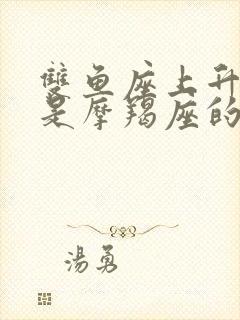 雙魚座上升
是摩羯座的
湯勇